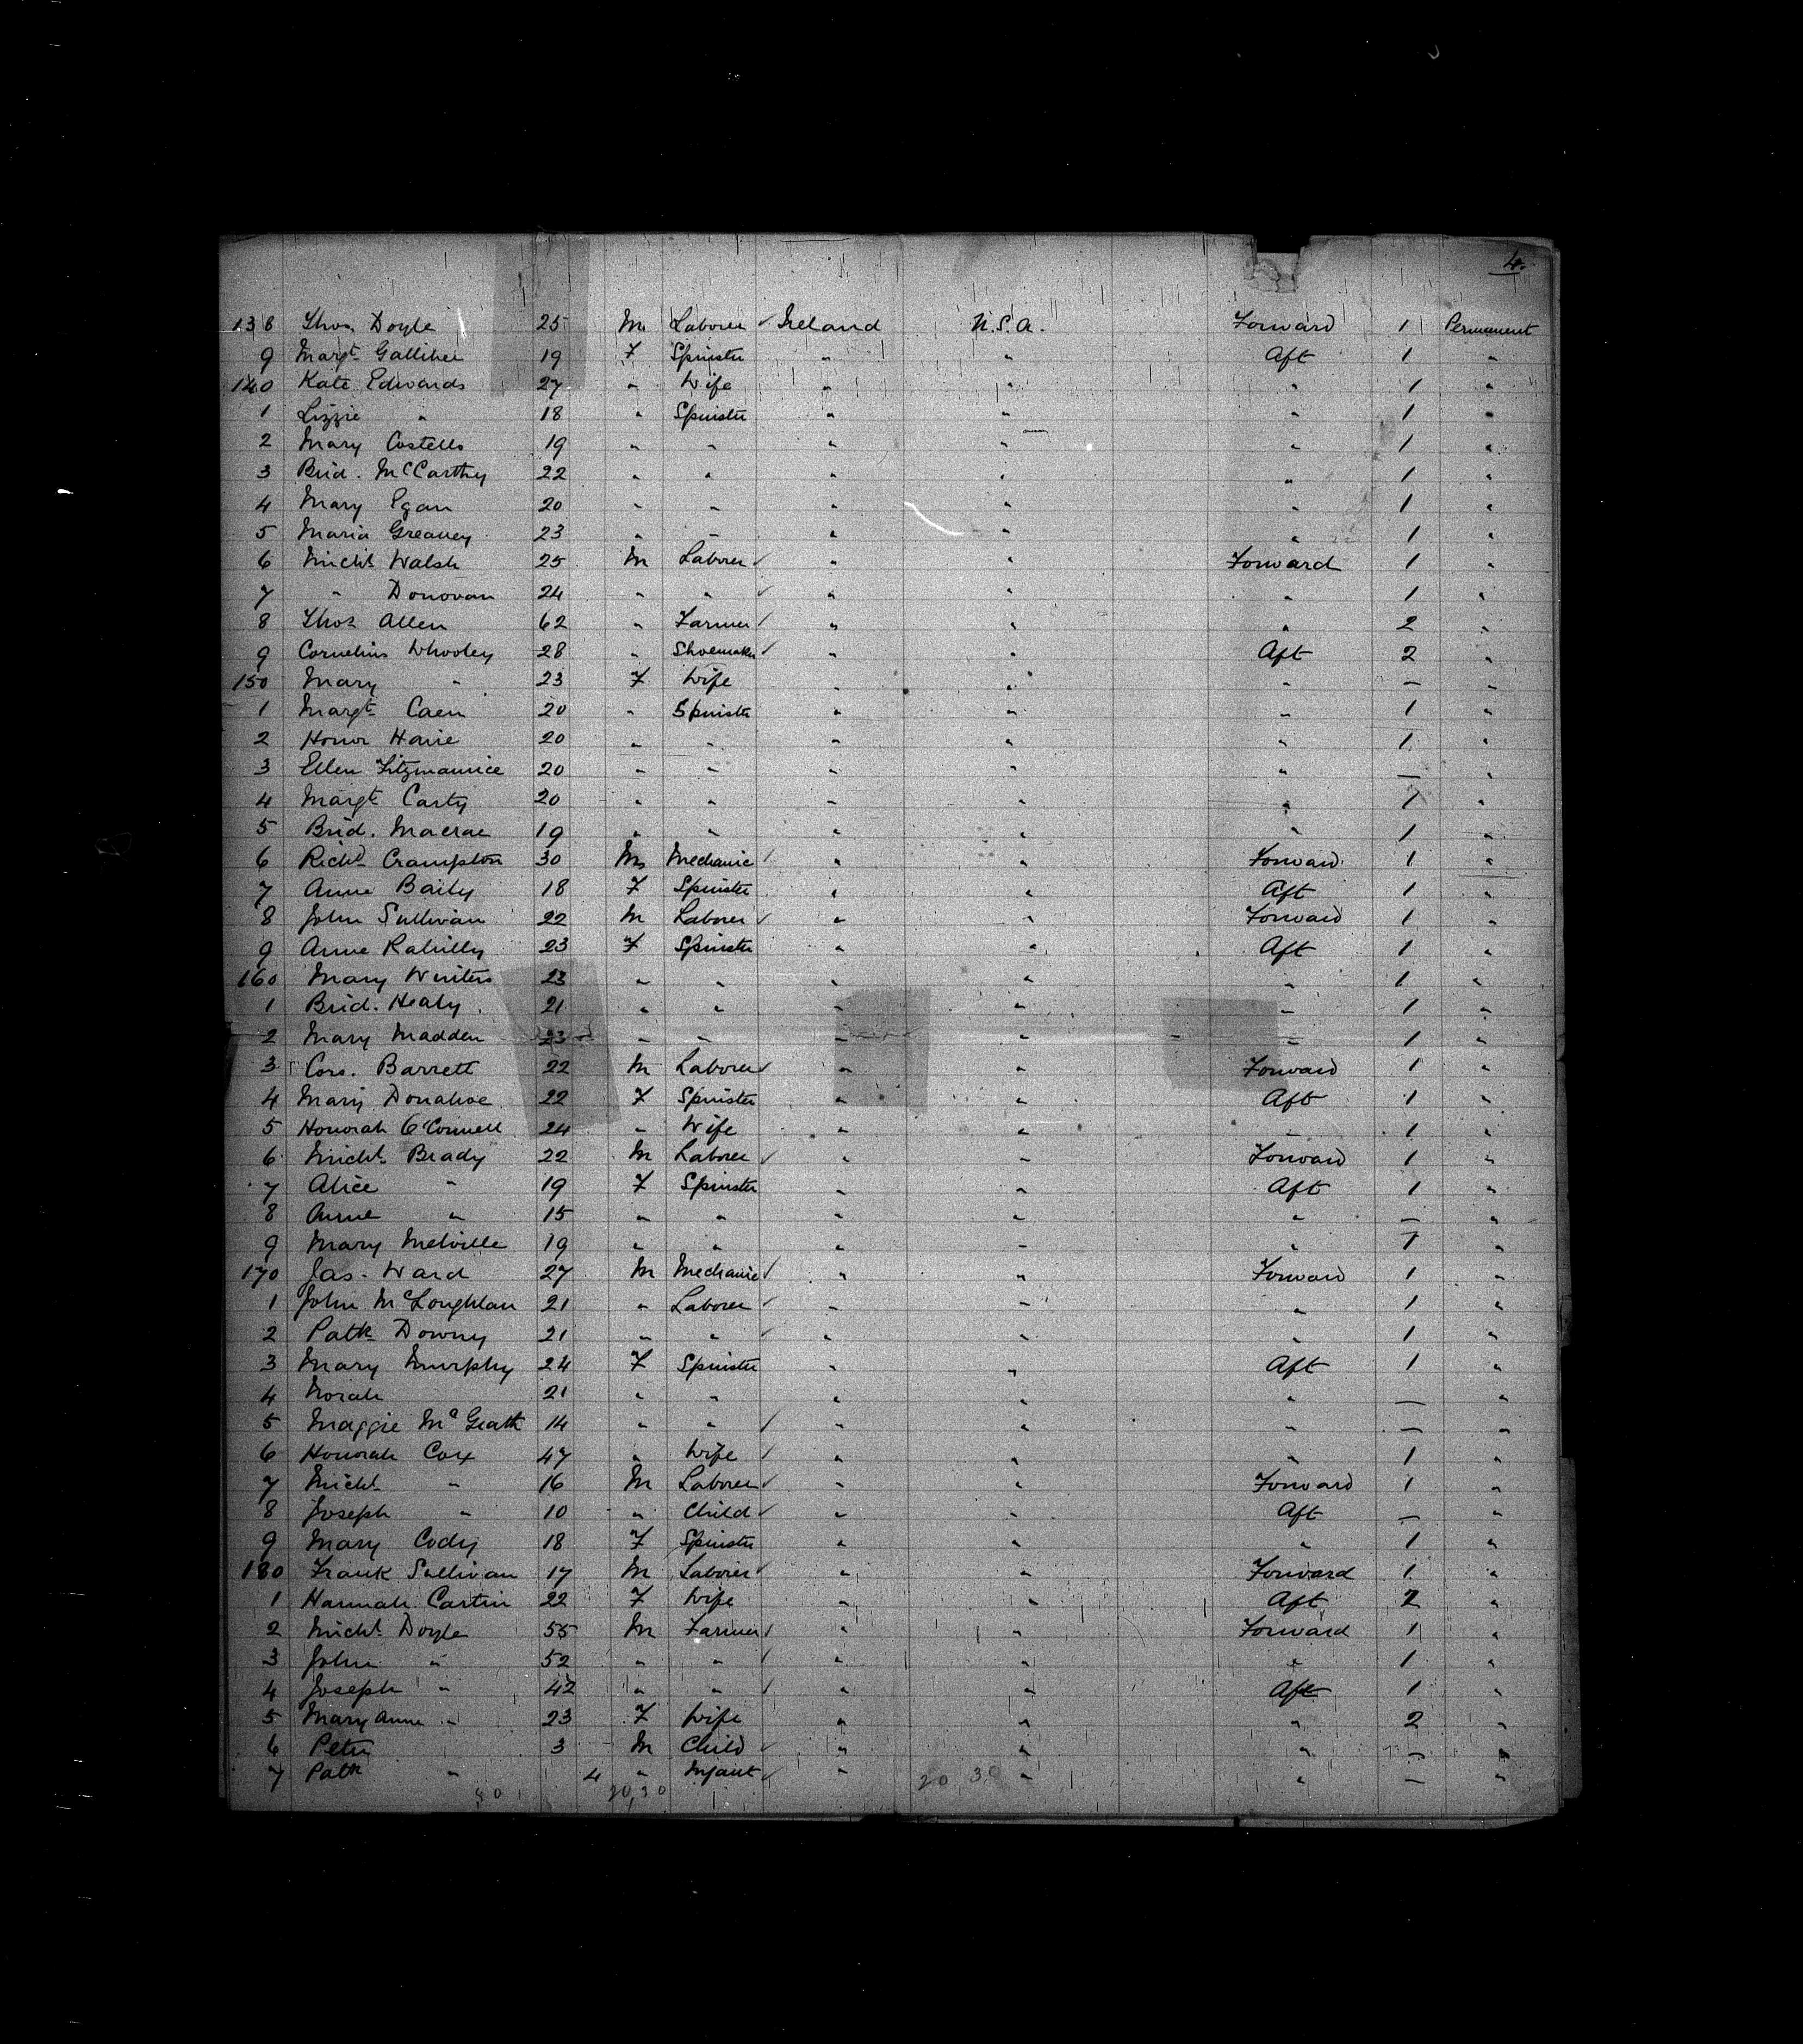 4.
138 Thos. Doyle 25 M Laborer ✓ Ireland U.S.A. Forward 1 Permanent
9 Margt Galliher 19 F Spinster " " Aft 1 "
140 Kate Edwards 27 " Wife " " " 1 "
1 Lizzie " 18 " Spinster " " " 1 "
2 Mary Costello 19 " " " " " 1 "
3 Brid. McCarthy 22 " " " " " 1 "
4 Mary Egan 20 " " " " " 1 "
5 Maria Greaney 23 " " " " " 1 "
6 Michl Walsh 25 M Laborer ✓ " " Forward 1 "
7 " Donovan 24 " " ✓ " " " 1 "
8 Thos Allen 62 " Farmer ✓ " " " 2 "
9 Cornelius Whooley 28 " Shoemaker ✓ " " Aft 2 "
150 Mary " 23 F Wife " " " — "
1 Margt Caen 20 " Spinster " " " 1 "
2 Honor Haire 20 " " " " " 1 "
3 Ellen Fitzmaurice 20 " " " " " — "
4 Margt Carty 20 " " " " " 1 "
5 Brid. Macrae 19 " " " " " 1 "
6 Richd Crampton 30 M Mechanic ✓ " " Forward 1 "
7 Anne Baily 18 F Spinster " " Aft 1 "
8 John Sullivan 22 M Laborer ✓ " " Forward 1 "
9 Anne Rahilly 23 F Spinster " " Aft 1 "
160 Mary Winters 23 " " " " " 1 "
1 Brid. Healy 21 " " " " " 1 "
2 Mary Madden 23 " " " " " 1 "
3 Cors. Barrett 22 M Laborer ✓ " " Forward 1 "
4 Mary Donahoe 22 F Spinster " " Aft 1 "
5 Honorah O'Connell 24 " Wife " " " 1 "
6 Michl Brady 22 M Laborer ✓ " " Forward 1 "
7 Alice " 19 F Spinster " " Aft 1 "
8 Anne " 15 " " " " " — "
9 Mary Melville 19 " " " " " 1 "
170 Jas. Ward 27 M Mechanic ✓ " " Forward 1 "
1 John McLoughlan 21 " Laborer ✓ " " " 1 "
2 Patk Downy 21 " " ✓ " " " 1 "
3 Mary Murphy 24 F Spinster " " Aft 1 "
4 Norah 21 " " " " " — "
5 Maggie McGrath 14 " " ✓ " " " — "
6 Honorah Cox 47 " Wife ✓ " " " 1 "
7 Michl " 16 M Laborer ✓ " " Forward 1 "
8 Joseph " 10 " Child ✓ " " Aft — "
9 Mary Cody 18 F Spinster " " " 1 "
180 Frank Sullivan 17 M Laborer ✓ " " Forward 1 "
1 Hannah Cartin 22 F Wife " " Aft 2 "
2 Michl Doyle 55 M Farmer ✓ " " Forward 1 "
3 John " 52 " " ✓ " " " 1 "
4 Joseph " 42 " " ✓ " " Aft 1 "
5 Mary Anne " 23 F Wife " " " 2 "
6 Peter 3 M Child ✓ " " " — "
7 Patk " 4 " Infant ✓ " " " — "
20,30 20 30